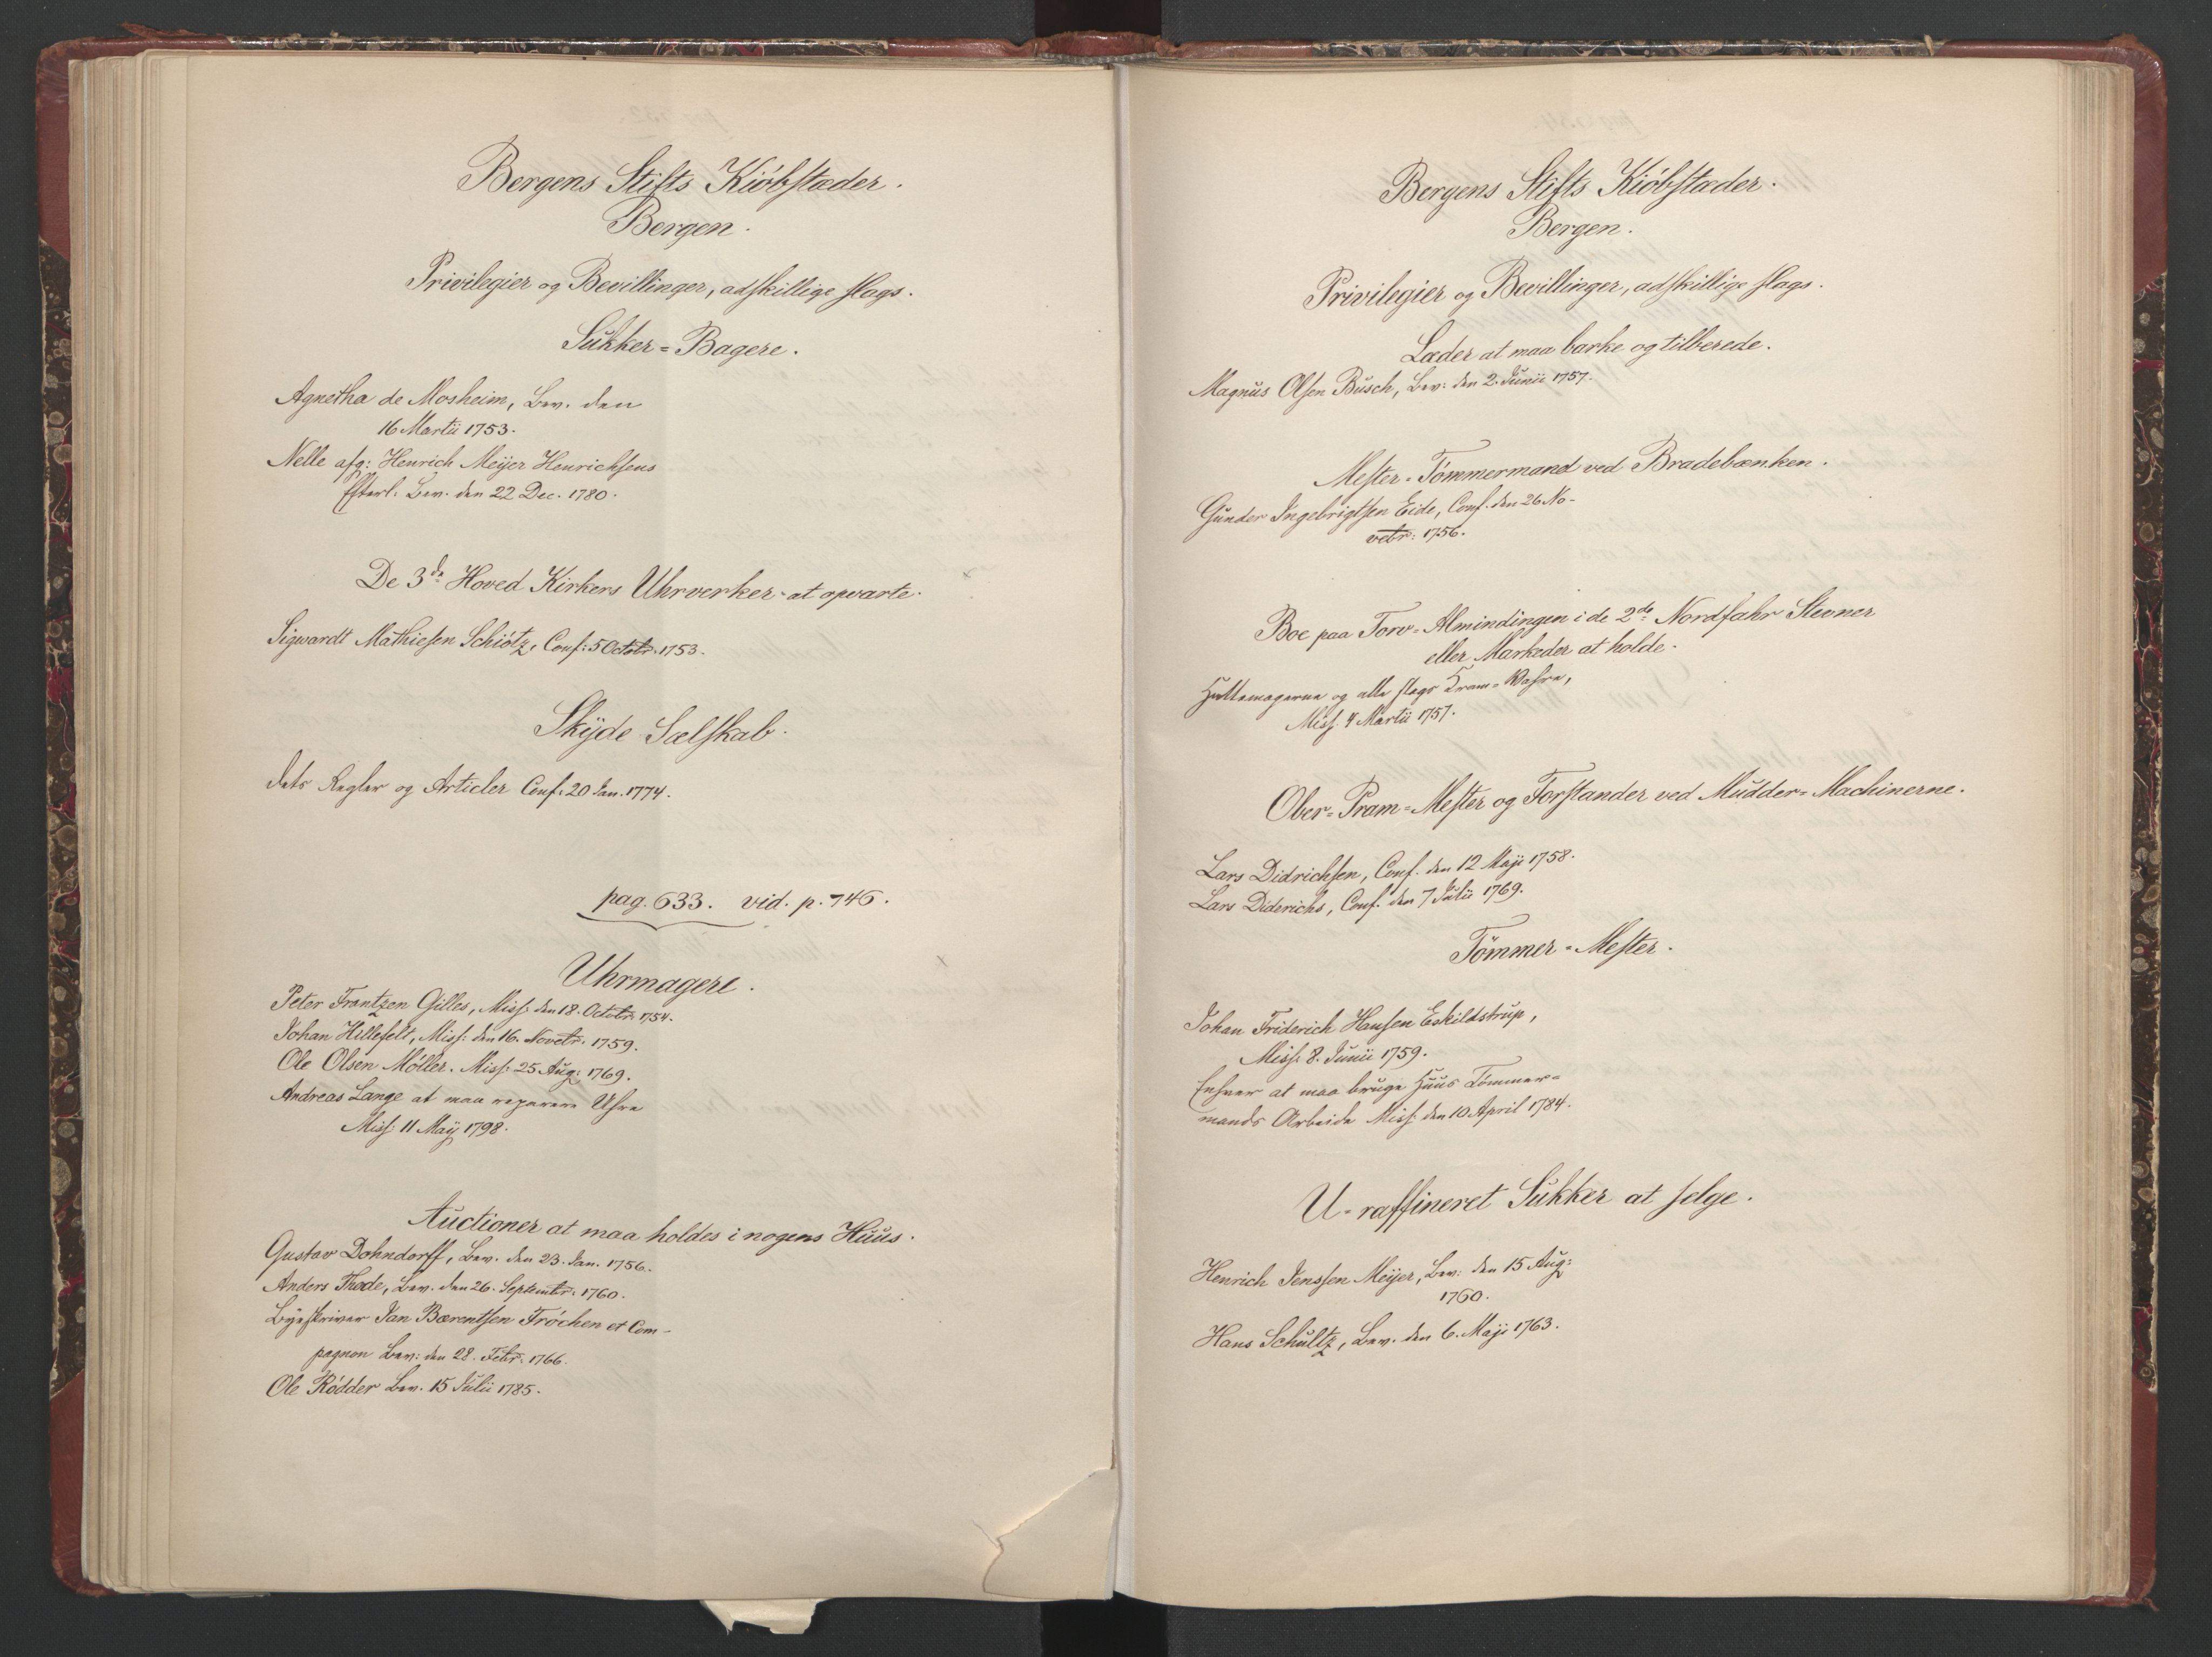 Bergens Stifts Kiöbstæder.
Bergen.
Privilegier og Bevillinger, adskillige slags.
Sukker=Bagere.
Agnetha de Mosheim, Bev. den
16 Martii 1753.
Nelle afg: Henrich Meÿer Henrichsens
Efterl: Bev. den 22 Dec. 1780.
De 3de Hoved Kirkers Uhrverker at opvarte.
Sigwardt Mathiesen Schiötz, Conf: 5 Octobr. 1753.
Skÿde Sælskab.
dets Regler og Articler Conf: 20 Jan. 1774.
pag. 633. vid. p. 746.
Uhrmagere.
Peter Frantzen Gilles, Miss: den 18. Octobr. 1754.
Johan Hillefelt, Miss: den 16. Novebr. 1759.
Ole Olsen Möller. Miss: 25 Aug: 1769.
Andreas Lange at maa reparere Uhre
Miss: 11 Maÿ 1798.
Auctioner at maa holdes i nogens Huus.
Gustav Dohndorff, Bev. den 23. Jan. 1756.
Anders Thode, Bev. den 26. Septembr. 1760.
Byeskriver Jan Bærentsen Tröchen et Com-
pagnon Bev: den 28. Febr. 1766.
Ole Rödder Bev. 15 Julii 1785.
Bergens Stifts Kiöbstæder.
Bergen.
Privilegier og Bevillinger, adskillige slags.
Læder at maa barke og tilberede.
Magnus Olsen Busch, Bev: den 2. Junii 1757.
Mester=Tömmermand ved Bradebænken.
Gunder Ingebrigtsen Eide, Conf. den 26 No-
vebr: 1756.
Boe paa Torv=Almindingen i de 2de Nordfahr Stevner
eller Markeder at holde.
Huttemagerne og alle slags Kram=Wahre,
Miss: 4 Martii 1757.
Ober=Pram=Mester og Forstander ved Mudder=Machinerne.
Lars Didrichsen, Conf. den 12 Maji 1758.
Lars Diderichs, Conf. den 7 Julii 1769.
Tömmer=Mester.
Johan Friderich Hansen Eskildstrup,
Miss: 8. Junii 1759.
Enhver at maa bruge Huus Tömmer=
mands Arbeide Miss: den 10 April 1784.
U=raffineret Sukker at selge.
Henrich Jenssen Meÿer, Bev: den 15 Aug:
1760.
Hans Schultz, Bev. den 6. Maji 1763.